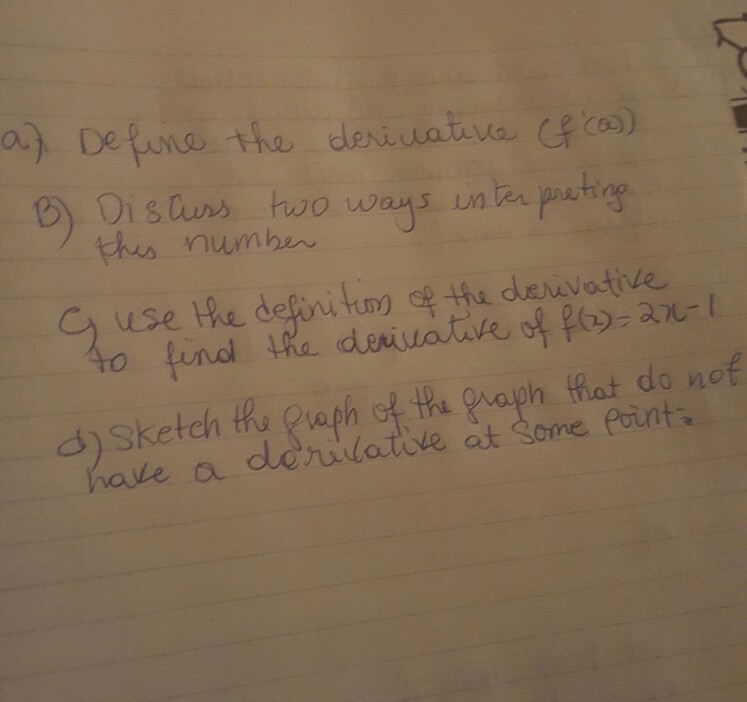 a) Define the derivative (f'(a))
B) Discuss two ways interpreting
this number
C) use the definition of the derivative
to find the derivative of f(x)=2x-1
d) Sketch the graph of the graph that do not
have a derivative at some point.